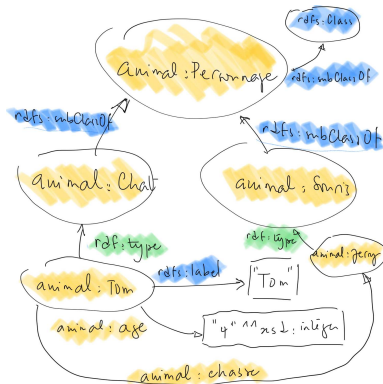 rdfs:Class
animal:Personnage
rdfs:subClassOf
rdfs:subClassOf
rdfs:subClassOf
animal:Chat
animal:Souris
rdf:type
rdf:type
animal:Jerry
rdfs:label
animal:Tom
"Tom"
animal:age
"4"^^xsd:integer
animal:chasse